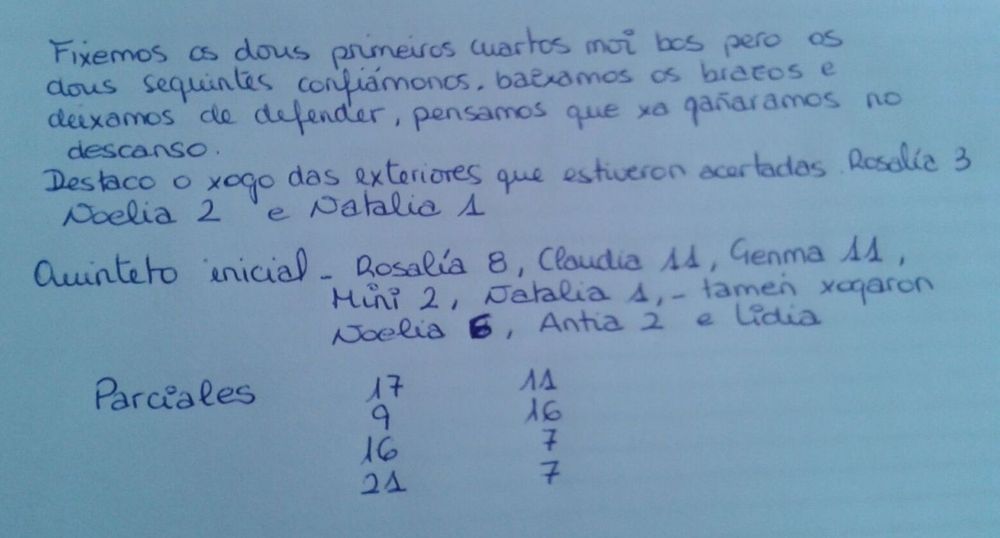 Fixemos os dous primeiros cuartos moi bos pero os
dous seguintes confiámonos, baixamos os brazos e
deixamos de defender, pensamos que xa gañaramos no
descanso.
Destaco o xogo das exteriores que estiveron acertadas. Rosalía 3
Noelia 2 e Natalia 1
Quinteto inicial - Rosalía 8, Claudia 11, Genma 11,
Mini 2, Natalia 1, - tamén xogaron
Noelia 6, Antia 2 e Lidia
Parciales 17 11
9 16
16 7
21 7